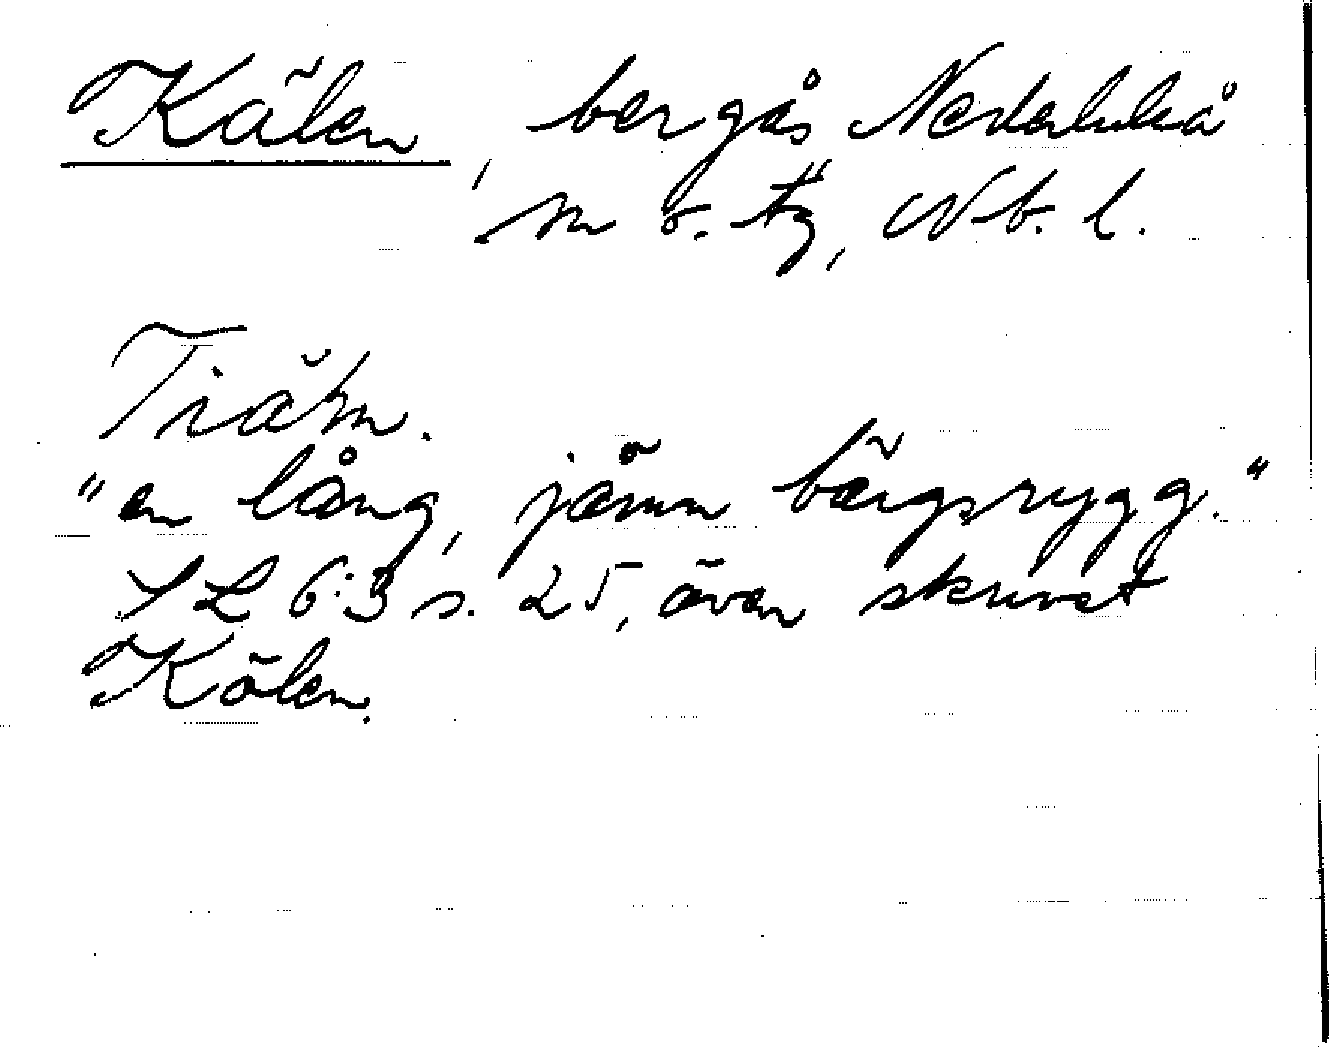 Kälen, bergås Nederluleå
sn o. tg, Nb. l.
Tiäłn.
"en lång, jämn bärgsrygg."
SL 6:3 s. 25, även skrivet
Kölen.